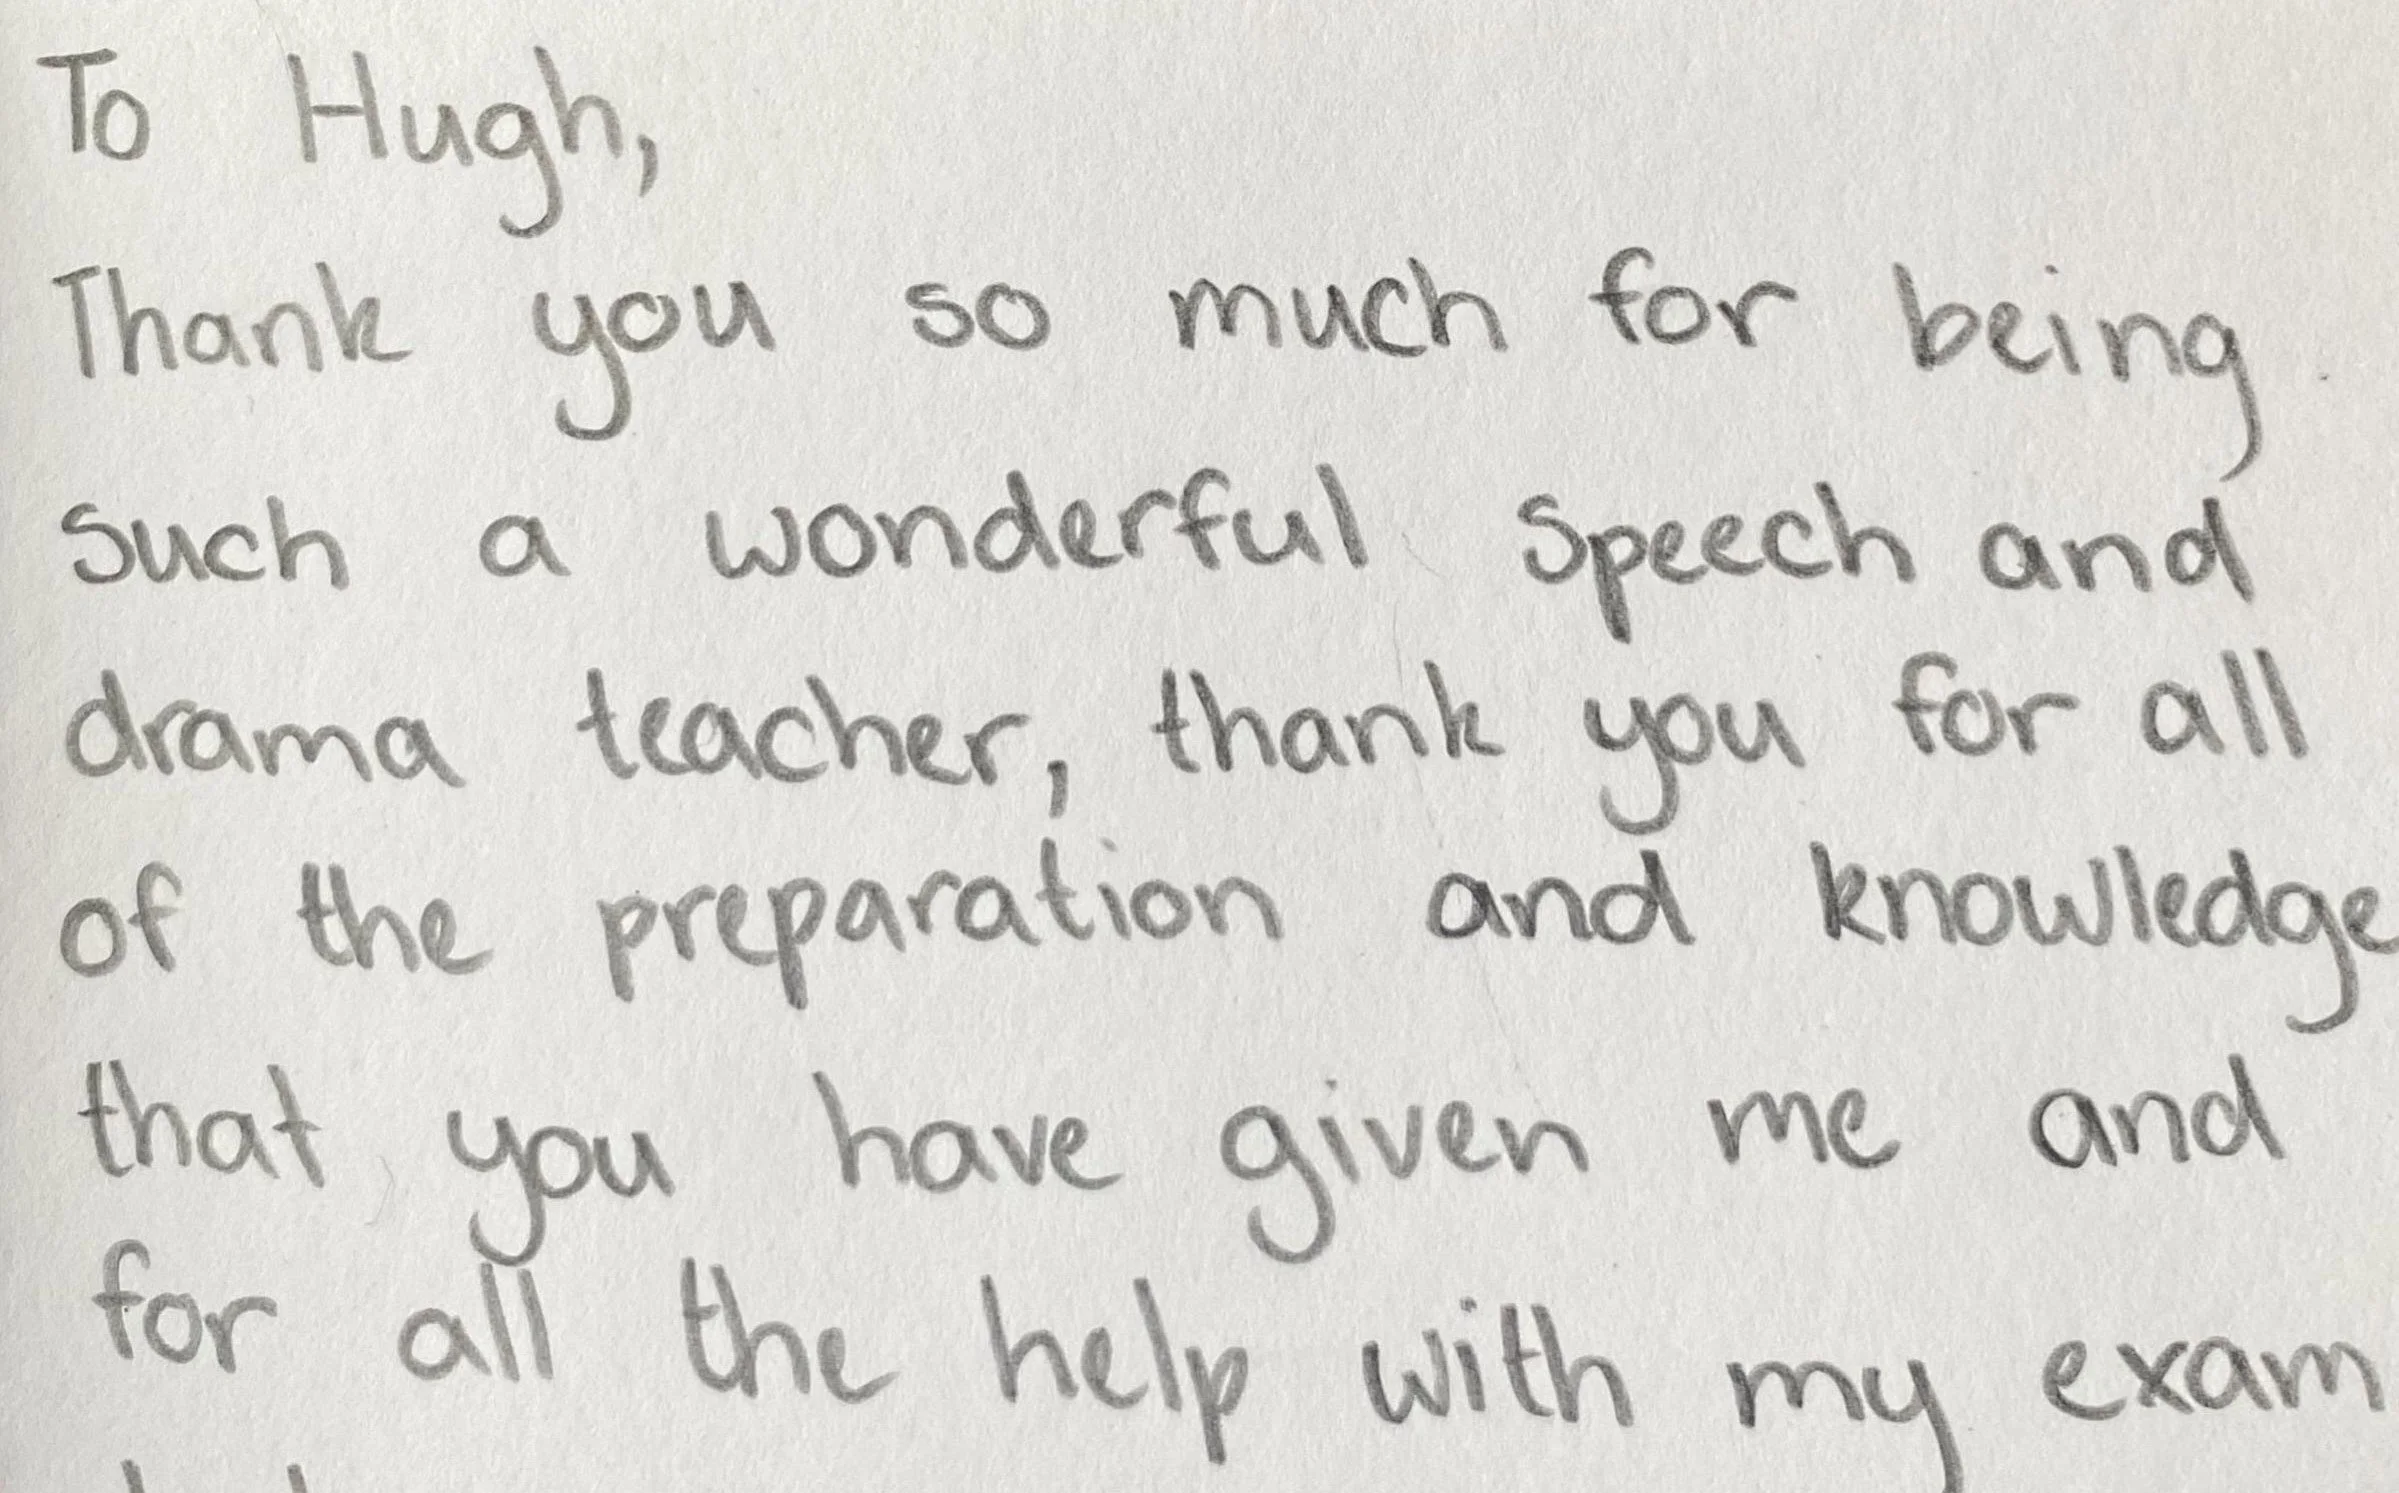 To Hugh,
Thank you so much for being
such a wonderful speech and
drama teacher, thank you for all
of the preparation and knowledge
that you have given me and
for all the help with my exam